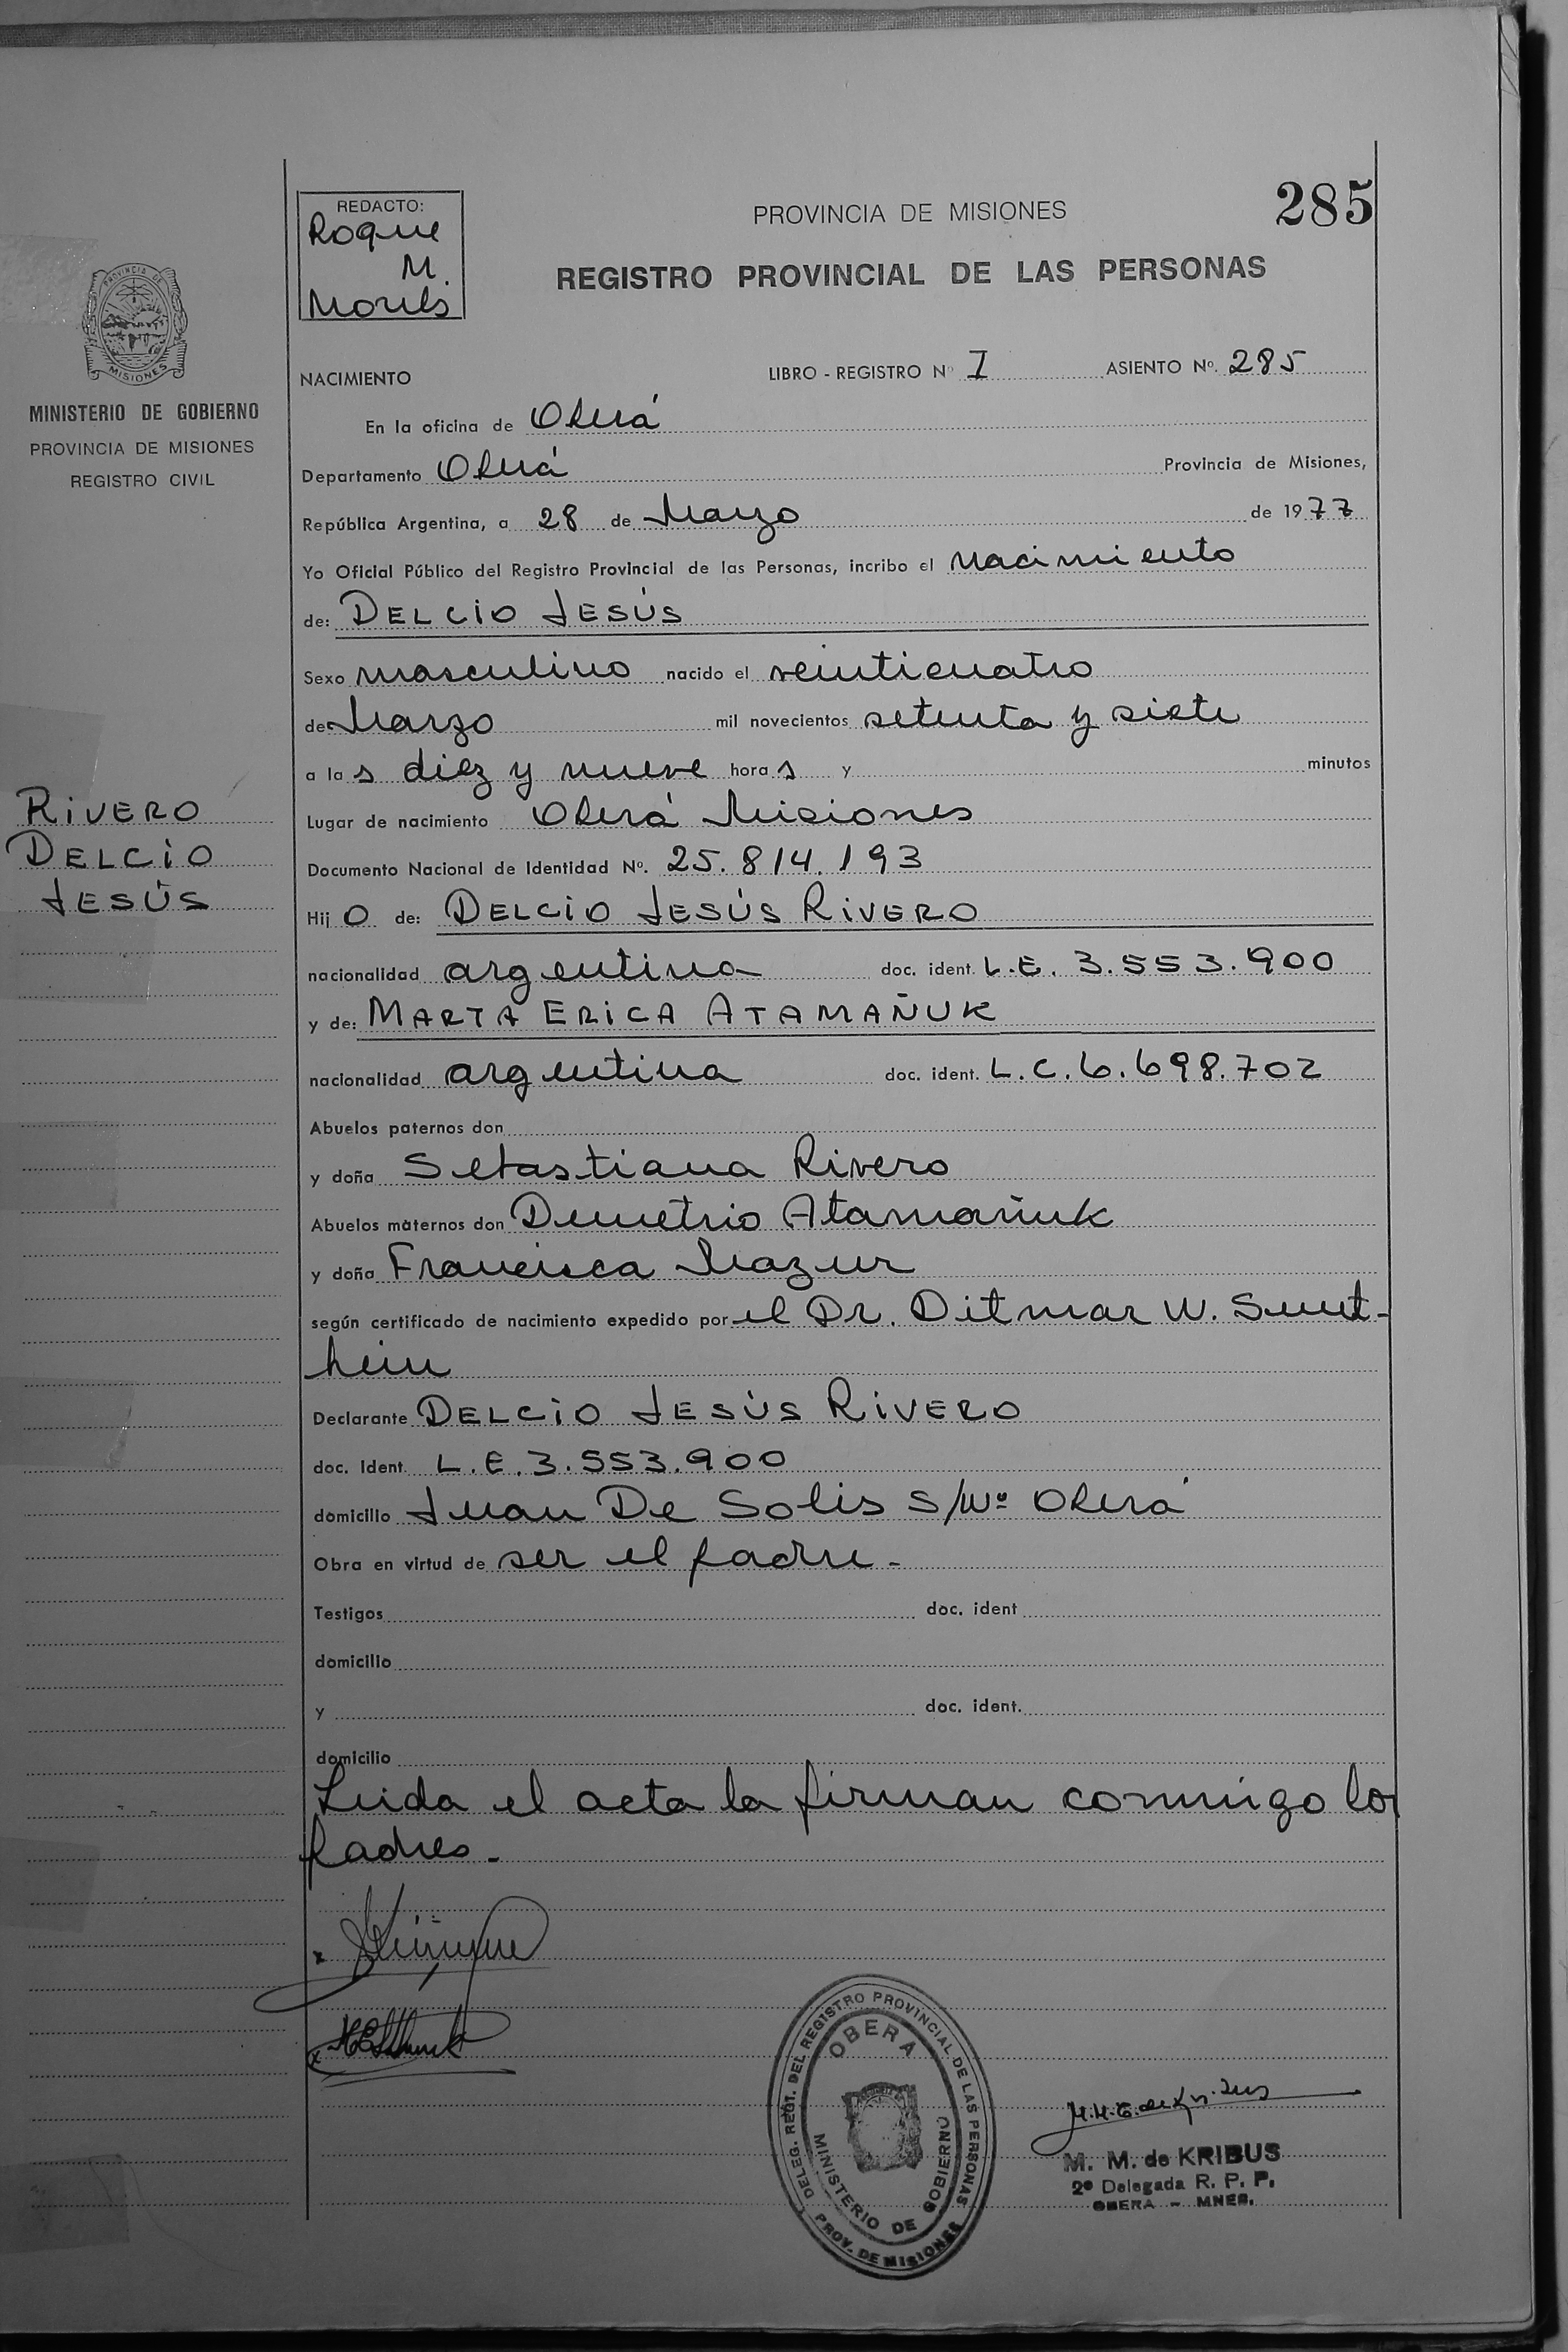 285
REDACTO:
Roque
M.
PROVINCIA DE MISIONES
REGISTRO PROVINCIAL DE LAS PERSONAS
PROVINCIA DE
MISIONES
MINISTERIO DE GOBIERNO
PROVINCIA DE MISIONES
REGISTRO CIVIL
NACIMIENTO LIBRO - REGISTRO Nº I ASIENTO Nº. 285
En la oficina de Oberá
Departamento Oberá Provincia de Misiones,
República Argentina, a 28 de Marzo de 1977
Yo Oficial Público del Registro Provincial de las Personas, incribo el nacimiento
de: DELCIO JESÚS
Sexo masculino nacido el veinticuatro
de Marzo mil novecientos setenta y siete
a las diez y nueve horas y minutos
Lugar de nacimiento Oberá Misiones
RIVERO
DELCIO
JESÚS
Documento Nacional de Identidad Nº. 25.814.193
Hijo de: DELCIO JESÚS RIVERO
nacionalidad argentina doc. ident. L.E. 3.553.900
y de: MARTA ERICA ATAMAÑUK
nacionalidad argentina doc. ident. L.C. 6.698.702
Abuelos paternos don
y doña Sebastiana Rivero
Abuelos maternos don Demetrio Atamañuk
y doña Francisca Mazur
según certificado de nacimiento expedido por el Dr. Ditmar W.
Declarante DELCIO JESÚS RIVERO
doc. ident. L.E. 3.553.900
domicilio Juan De Solis S/Nº Oberá
Obra en virtud de ser el padre.-
Testigos doc. ident
domicilio
y doc. ident.
domicilio
Leida el acta la firman conmigo los
padres.-
DELEG. REGT. DEL REGISTRO PROVINCIAL DE LAS PERSONAS
PROV. DE MISIONES
OBERA
MINISTERIO DE GOBIERNO
M. M. de KRIBUS
2ª Delegada R. P. P.
OBERA - MNES.